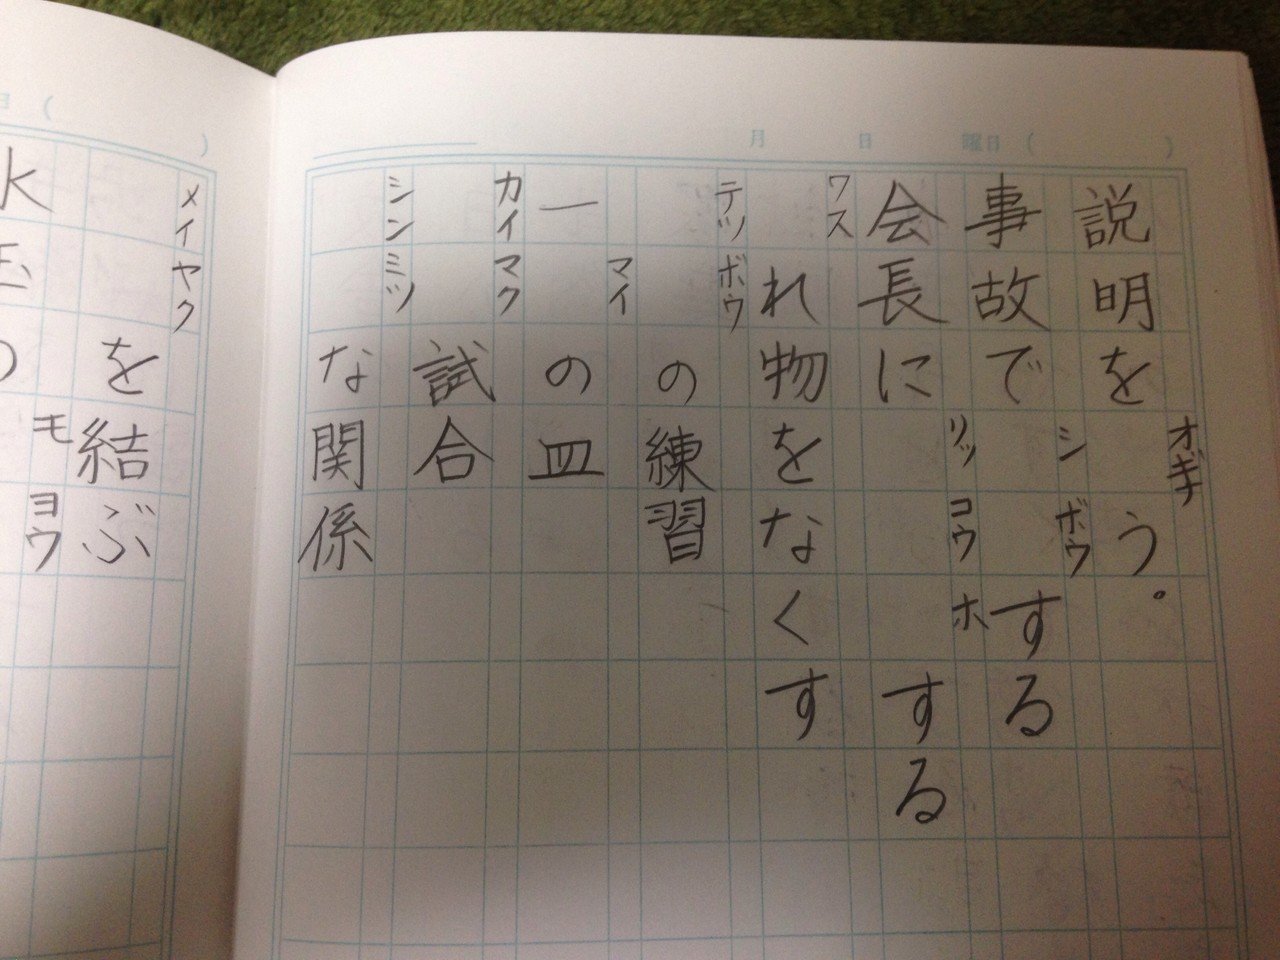 月 日 曜日( )
説明をう。
オギナ
事故でする
シボウ
会長にする
リッコウホ
れ物をなくす
ワス
の練習
テツボウ
一の皿
マイ
試合
カイマク
な関係
シンミツ
日( )
を結ぶ
メイヤク
モヨウ
水玉の